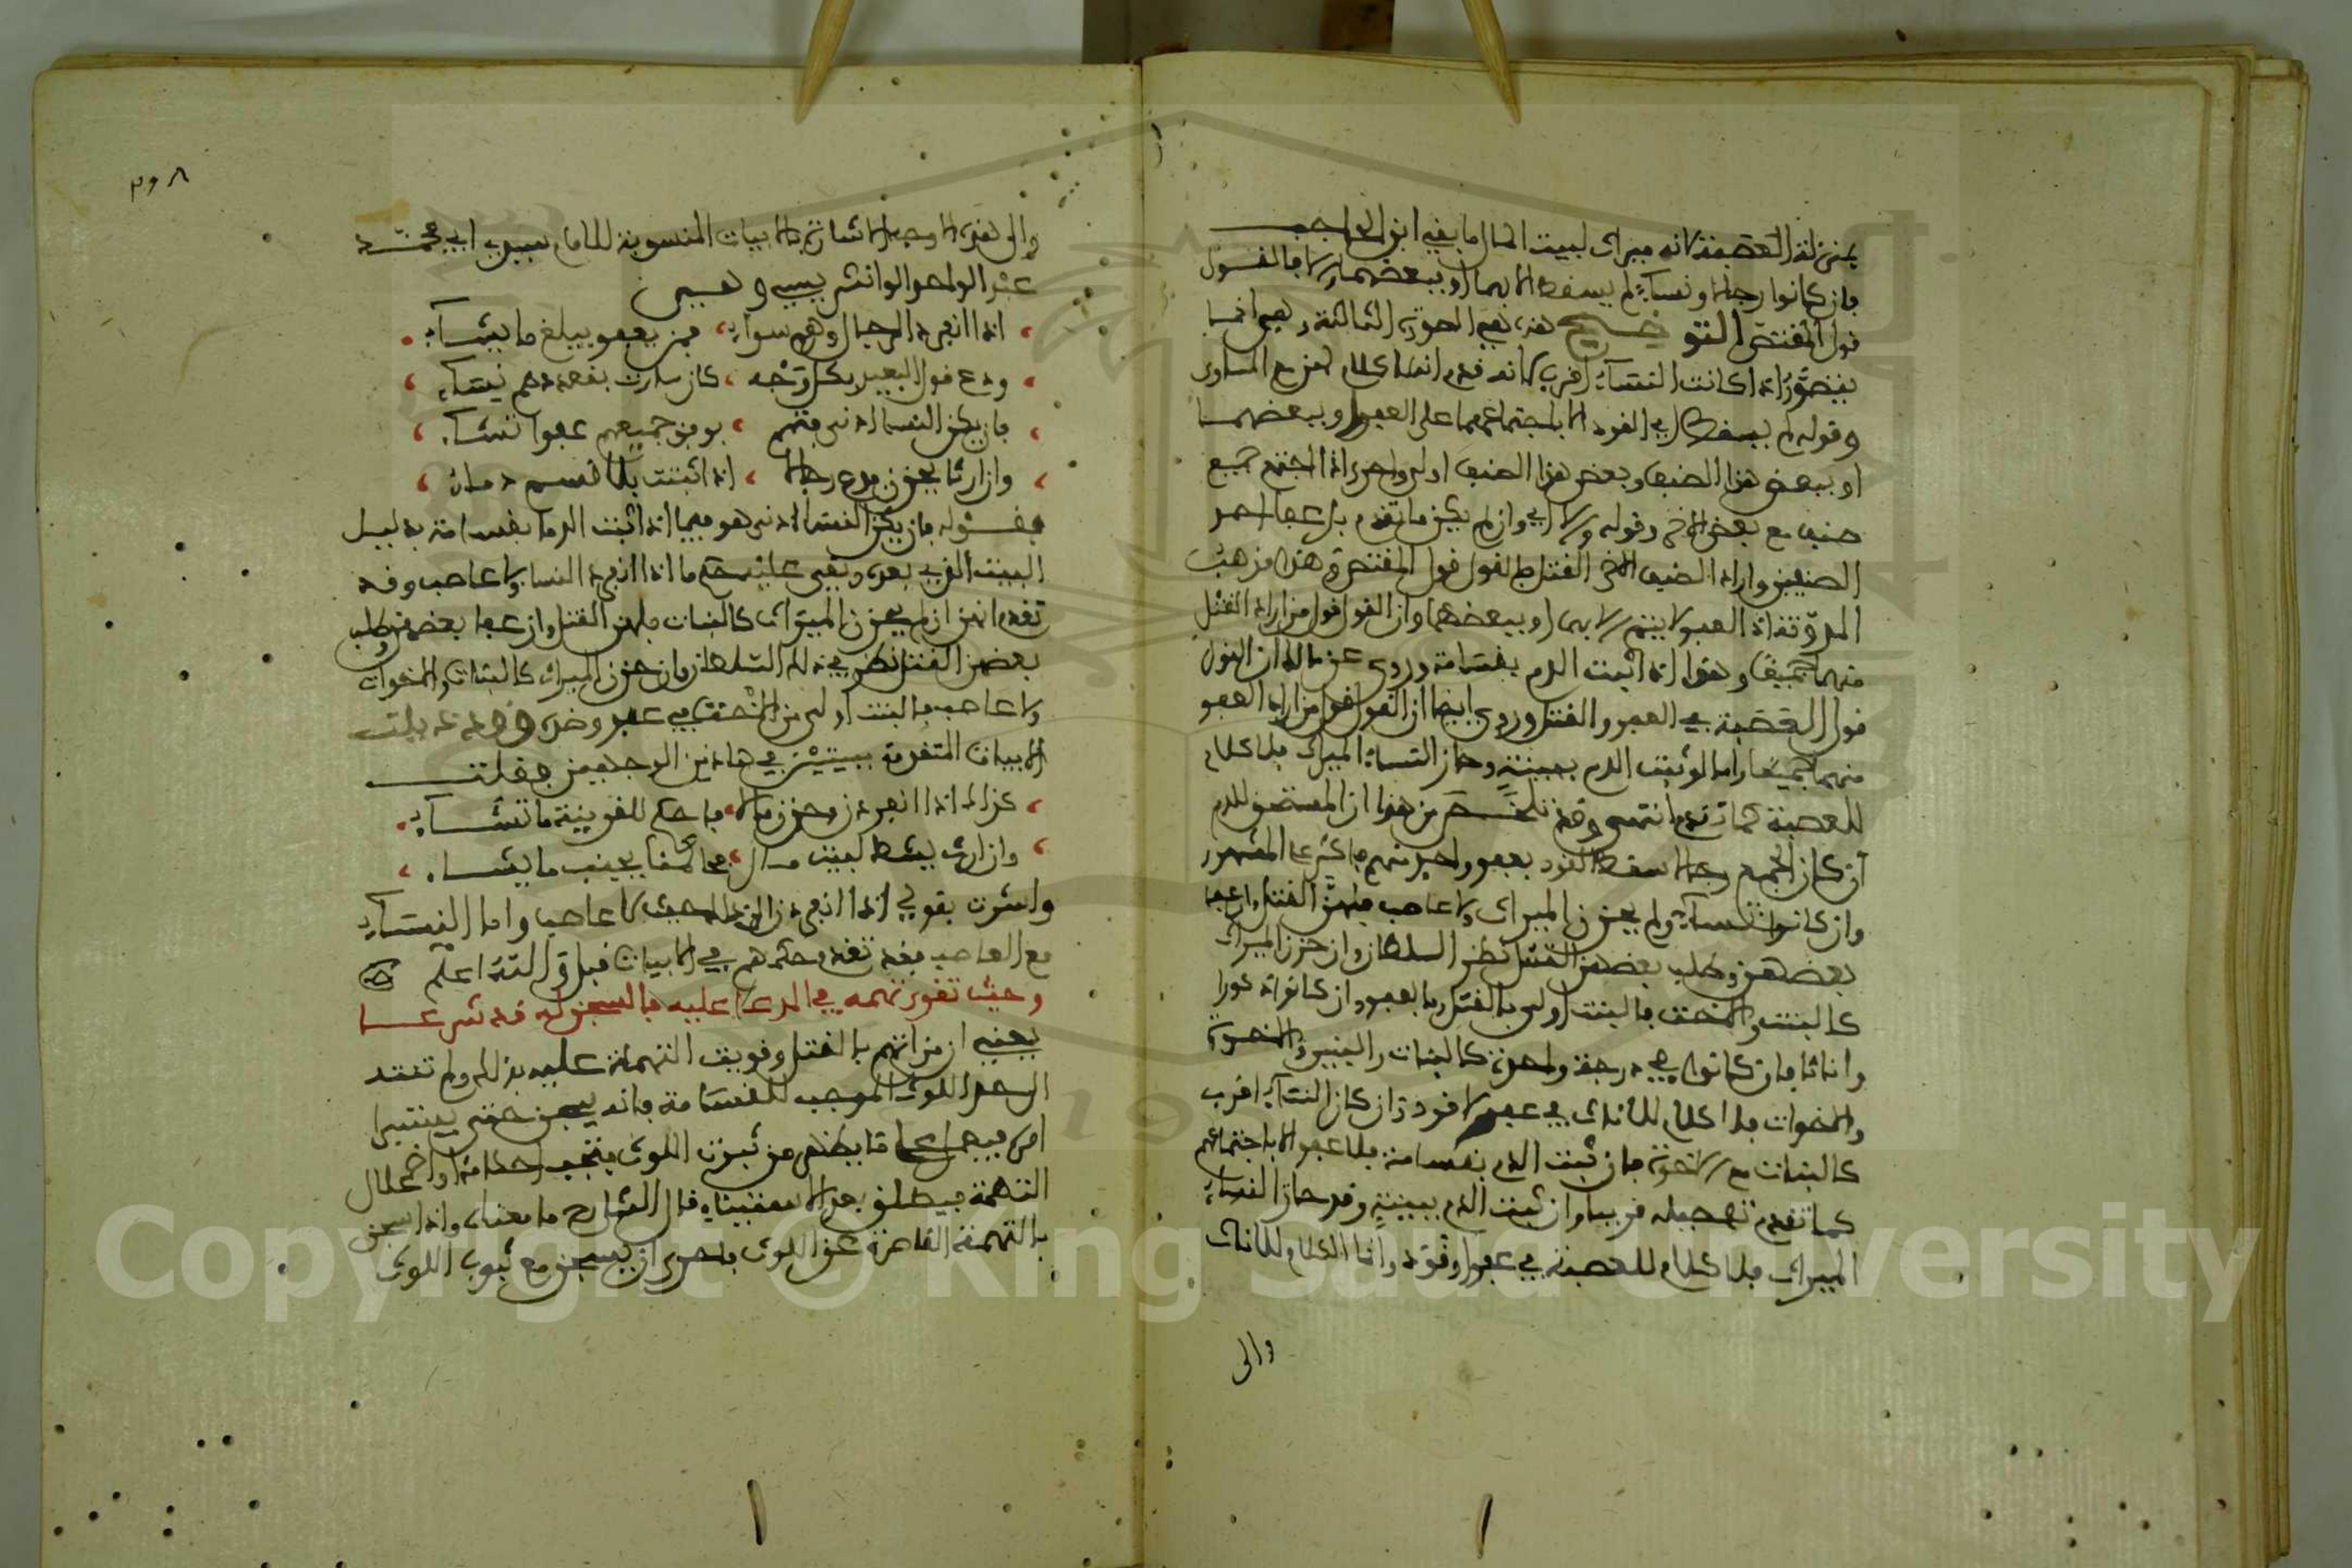 بمنزلة العصبة لانه ميراث لبيت المال ما بقي ابن الحاجب
فان كانوا رجالا ونساء لم يسقط الا بهما او ببعضهما والا فالقول
قول المقتص التوضيح هذه هي الصورة الثالثة وهي انما
يتصور اذا كانت النساء اقرب لانه قدم انه لا كلام لهن مع المساوي
وقوله لم يسقط اي القود الا باجتماعهما على العفو او ببعضهما
او ببعض هذا الصنف وبعض هذا الصنف اولى واحرى اذا اجتمع جميع
صنف مع بعض الاخر وقوله والا اي وان لم يكن ما تقدم بل عفا احد
الصنفين واراد الصنف الاخر القتل فالقول قول المقتص وهذا مذهب
المدونة ان العفو لا يتم الا بهما او ببعضهما وان القول قول من اراد القتل
منهما جميعا وهذا اذا ثبت الدم بقسامة وروي عن مالك ان القول
قول العصبة في العفو والقتل وروي ايضا ان القول قول من اراد العفو
منهما جميعا واما لو ثبت الدم ببينة وحاز النساء الميراث فلا كلام
للعصبة كما تقدم انتهى وقد تلخص من هذا ان المستحق للدم
ان كان الجميع رجالا سقط القود بعفو واحد منهم فاكثر على المشهور
وان كانوا نساء ولم يحزن الميراث ولا عاصب فلهن القتل وان عفا
بعضهن وطلب بعضهن القتل نظر السلطان وان حزن الميراث
كالبنت والاخت فالبنت اولى بالقتل وبالعفو وان كانوا ذكورا
واناثا فان كانوا في درجة واحدة كالبنات والبنين والاخوة
والاخوات فلا كلام للاناث في عفو ولا قود وان كان النساء اقرب
كالبنات مع الاخوة فان ثبت الدم بقسامة فلا عفو الا باجتماعهم
كما تقدم تفصيله قريبا وان ثبت الدم ببينة وقد حاز النساء
الميراث فلا كلام للعصبة في عفو او قود وانما الكلام للاناث
والى
والى هذه الاوجه الاشارة بالابيات المنسوبة للامام سيدي ابي محمد
عبد الواحد الوانشريسي وهي
اذا انفرد الرجال وهم سواء فمن يعفو يبلغ ما يشاء
ودع قول البعيد بكل وجه كان سارت بقعددهم نساء
فان يكن النسا ادنى فمنهم يوفق جميعهم عفوا تشاء
وان ارثا يحزن فدع رجالا اذا ثبتت بلا قسم دماء
فقوله فان يكن النسا ادنى هو فيما اذا ثبت الدم بقسامة بدليل
البيت الذي بعده وبقي عليه حكم ما اذا انفرد النسا ولا عاصب وقد
تقدم انهن ان لم يحزن الميراث كالبنات فلهن القتل وان عفا بعضهن وطلب
بعضهن القتل نظر في ذلك السلطان وان حزن الميراث كالبنات والاخوات
ولا عاصب فالبنت اولى من الاخت في عفو وضده وقد ذيلت
الابيات المتقدمة ببيتين في هاذين الوجهين فقلت
كذاك اذا انفردن وحزن مالا فاحكم للقريبة ما تشاء
وان ارث يشط لبيت مال
واشرت بقولي اذا انفردن الى حيث لا عاصب واما النساء
مع العاصب فقد تقدم حكمهم في الابيات قبل والله اعلم
وحيث تقوى تهمة في المدعا عليه فالسجن له قد شرعا
يعني ان من اتهم بالقتل وقويت التهمة عليه بذلك ولم تنته
الى حد اللوث الموجب للقسامة فانه يسجن حتى يتبين
امره فيعمل على ما يظهر من ثبوت اللوث فتجب احكامه او اضمحلال
التهمة فيطلق بعد الاستيناء قال الشارح ما معناه واذا سجن
بالتهمة القاصرة عن اللوث فاحرى ان يسجن مع ثبوت اللوث
Copyright © King Saud University